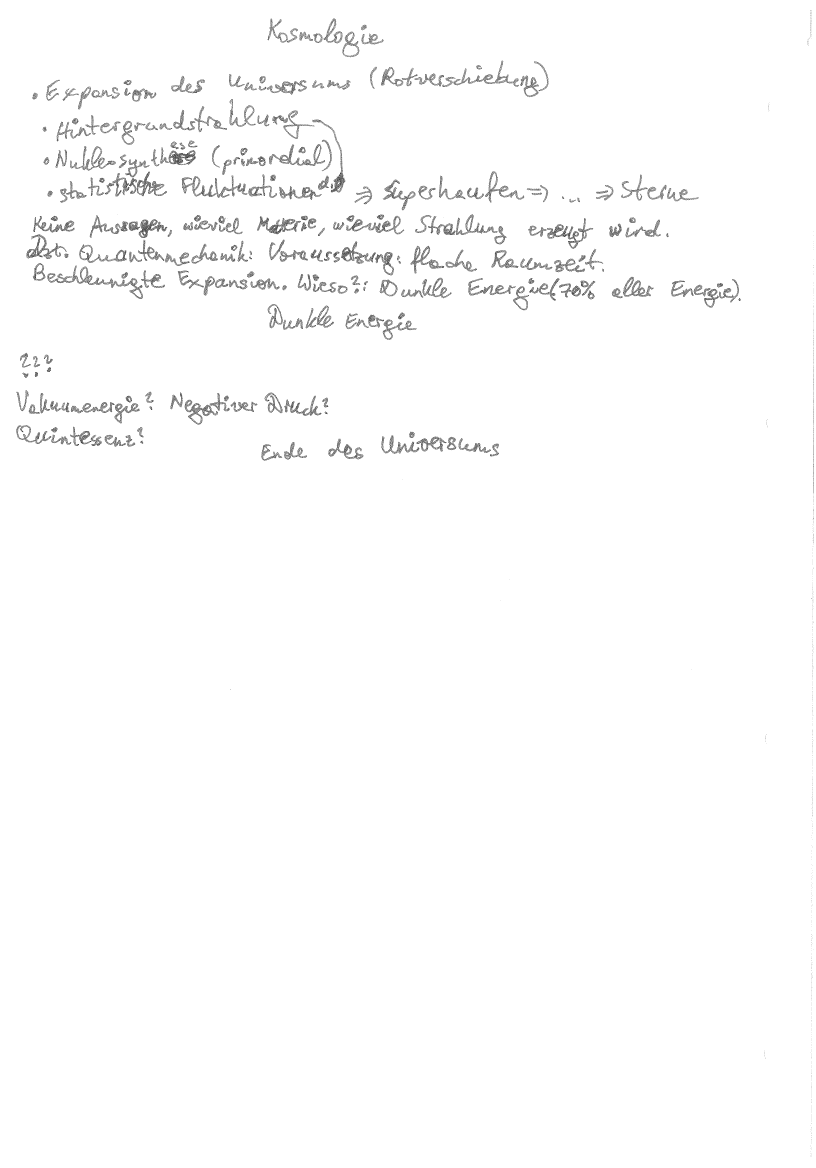 Kosmologie
• Expansion des Universums (Rotverschiebung)
• Hintergrundstrahlung
• Nukleosynthese (primordial)
• statistische Fluktuationen d. ⇒ Superhaufen ⇒ ... ⇒ Sterne
Keine Aussagen, wieviel Materie, wieviel Strahlung erzeugt wird.
Quantenmechanik: Voraussetzung: flache Raumzeit.
Beschleunigte Expansion. Wieso?: Dunkle Energie (70% aller Energie).
Dunkle Energie
???
Vakuumenergie? Negativer Druck?
Quintessenz?
Ende des Universums